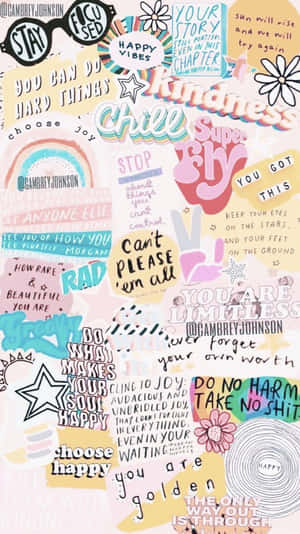 @CAMBREYJOHNSON
STAY FOCUSED
YOUR
STORY
CHAPTER
sun will rise
and we will
try again
HAPPY
VIBES
YOU CAN DO
HARD THINGS
kindness
choose joy
Chill
Super
Fly
STOP
about
things
you
can't
control
YOU GOT
THIS
@CAMBREYJOHNSON
ANYONE ELSE
HOW YOU
KEEP YOUR EYES
ON THE STARS,
AND YOUR FEET
ON THE GROUND
can't
PLEASE
'em all
RAD
HOW RARE
&
BEAUTIFUL
YOU ARE
YOU ARE
LIMITLESS
@CAMBREYJOHNSON
never forget
your own worth
DO
WHAT
MAKES
YOUR
SOUL
HAPPY
CLING TO JOY,
AUDACIOUS AND
UNBRIDLED JOY,
EVERYTHING
EVEN IN YOUR
WAITING.
DO NO HARM
TAKE NO SHIT
choose
happy
HAPPY
you are
golden
THE ONLY
WAY OUT
IS THROUGH